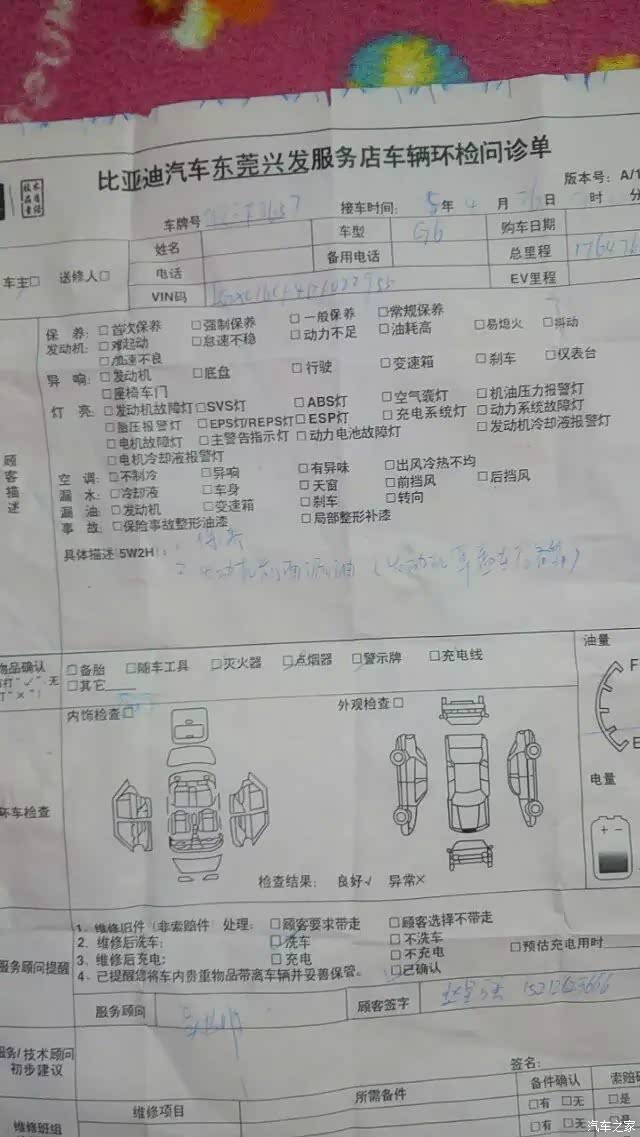 比亚迪汽车东莞兴发服务店车辆环检问诊单
版本号：A/1
车牌号 接车时间： 5 年 4 月 日 时 分
车主□ 送修人□ 姓名 车型 G6 购车日期
电话 备用电话 总里程
VIN码 EV里程
顾客描述
保 养：□首次保养 □强制保养 □一般保养 □常规保养
发动机：□难起动 □怠速不稳 □动力不足 □油耗高 □易熄火 □抖动
□加速不良
异 响：□发动机 □底盘 □行驶 □变速箱 □刹车 □仪表台
□座椅车门
灯 亮：□发动机故障灯 □SVS灯 □ABS灯 □空气囊灯 □机油压力报警灯
□胎压报警灯 □EPS灯/REPS灯 □ESP灯 □充电系统灯 □动力系统故障灯
□电机故障灯 □主警告指示灯 □动力电池故障灯 □发动机冷却液报警灯
□电机冷却液报警灯
空 调：□不制冷 □异响 □有异味 □出风冷热不均
漏 水：□冷却液 □车身 □天窗 □前挡风 □后挡风
漏 油：□发动机 □变速箱 □刹车 □转向
事 故：□保险事故整形油漆 □局部整形补漆
具体描述(5W2H)： 1. 保养
2. 发动机前面漏油
物品确认
打“✓”,无
打“×”)
□备胎 □随车工具 □灭火器 □点烟器 □警示牌 □充电线
□其它
油量
F
E
电量
环车检查
内饰检查□ 外观检查□
检查结果： 良好√ 异常×
服务顾问提醒
1、维修旧件（非索赔件）处理：□顾客要求带走 □顾客选择不带走
2、维修后洗车： □洗车 □不洗车
3、维修后充电： □充电 □不充电 □预估充电用时
4、已提醒您将车内贵重物品带离车辆并妥善保管。 □已确认
服务顾问 顾客签字
服务/技术顾问
初步建议
签名：
维修班组 维修项目 所需备件 备件确认 索赔确
□有 □无 □是
□有 □无 □是
汽车之家